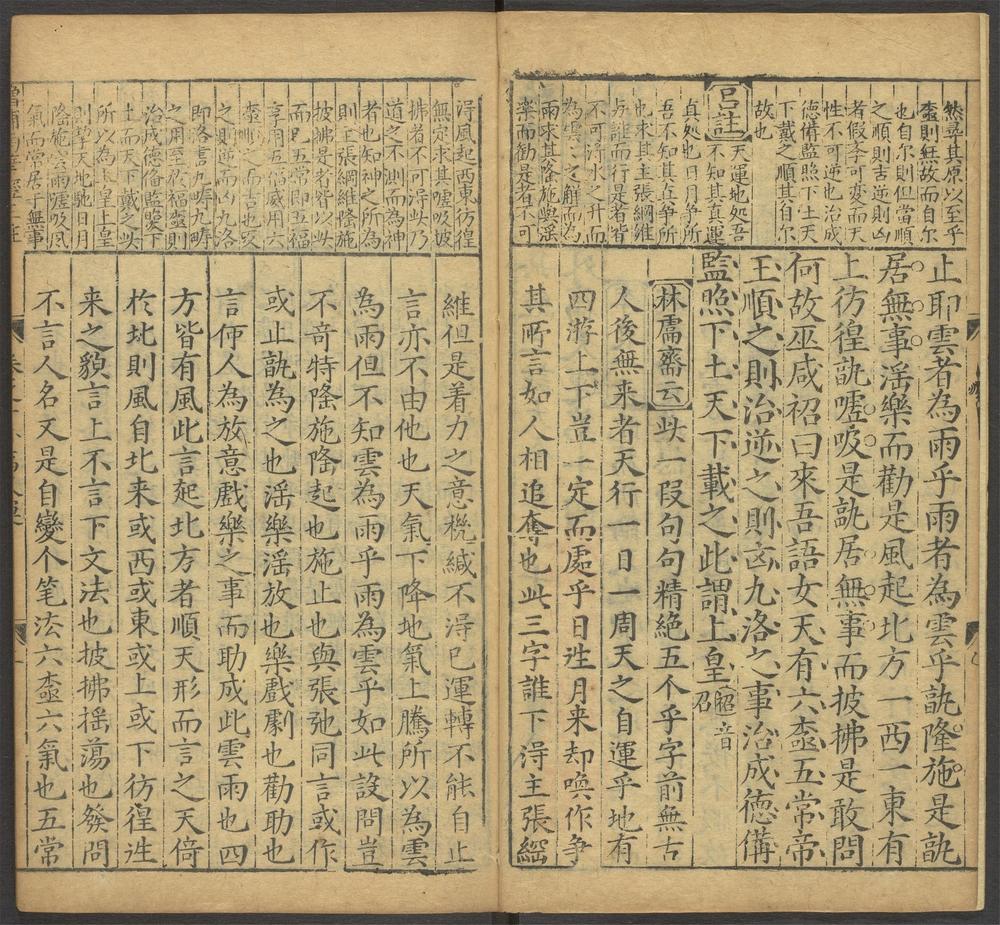 然尋其原以至乎
極則無故而自尔
也自尔則但當順
之順則吉逆則凶
者假李可變而天
性不可逆也治成
德備監照下土天
下戴之順其自尔
故也
呂註天運地処吾
不知其真運
真処也日月争所
吾不知其真争所
也求其主張綱維
与誰而行是者皆
不可淂水之升而
為雲雲之觧而為
雨求其隆施與滛
楽而勸是者不可
止耶雲者為雨乎雨者為雲乎孰隆施是孰
居無事滛樂而勸是風起北方一西一東有
上彷徨孰噓吸是孰居無事而披拂是敢問
何故巫咸祒曰來吾語女天有六極五常帝
王順之則治逆之則凶九洛之事治成德備
監照下土天下載之此謂上皇祒音召
林鬳齋云此一段句句精絕五个乎字前無古
人後無来者天行一日一周天之自運乎地有
四游上下豈一定而處乎日迬月来却喚作争
其所言如人相追奪也此三字誰下淂主張綱
淂風起西東彷徨
無定求其噓吸披
拂者不可淂此乃
道之不測而為神
者也知神之所為
則主張綱維隆施
披拂是者皆以此
而已五常即五福
享用五福威用六
極順之而吉也
之則逆而凶九洛
即洛書九畴九畴
之用至於福極則
治成德备監臨下
土而天下戴之此
所以為上皇上皇
則摯天地馳日月
隆施雲雨嘘吸风
氣而常居于無事
維但是着力之意機緘不淂已運轉不能自止
言亦不由他也天氣下降地氣上騰所以為雲
為雨但不知雲為雨乎雨為雲乎如此設問豈
不奇特隆施隆起也施止也與張弛同言或作
或止孰為之也滛樂滛放也樂戲劇也勸助也
言何人為放意戲樂之事而助成此雲雨也四
方皆有風此言起北方者順天形而言之天倚
於北則風自北来或西或東或上或下彷徨迬
来之貌言上不言下文法也披拂揺蕩也發問
不言人名又是自變个笔法六極六氣也五常